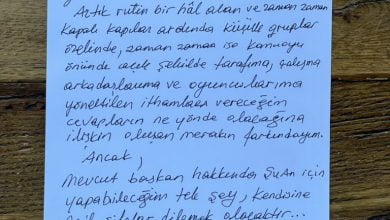 Artık rutin bir hâl alan ve zaman zaman
kapalı kapılar ardında küçük gruplar
özelinde, zaman zaman ise kamuoyu
önünde açık şekilde tarafıma, çalışma
arkadaşlarıma ve oyuncularıma
yöneltilen ithamlara vereceğim
cevapların ne yönde olacağına
ilişkin oluşan merakın farkındayım.
Ancak,
mevcut başkan hakkında şu an için
yapabileceğim tek şey, kendisine
acil şifalar dilemek olacaktır...